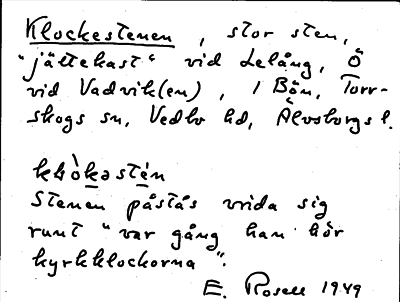 Klockestenen, stor sten,
"jättekast" vid Lelång, Ö
vid Vadvik(en), i Bön, Torr-
skogs sn, Vedbo hd, Älvsborgs l.
Stenen påstås vrida sig
runt "var gång han hör
kyrkklockorna".
E. Rosell 1949